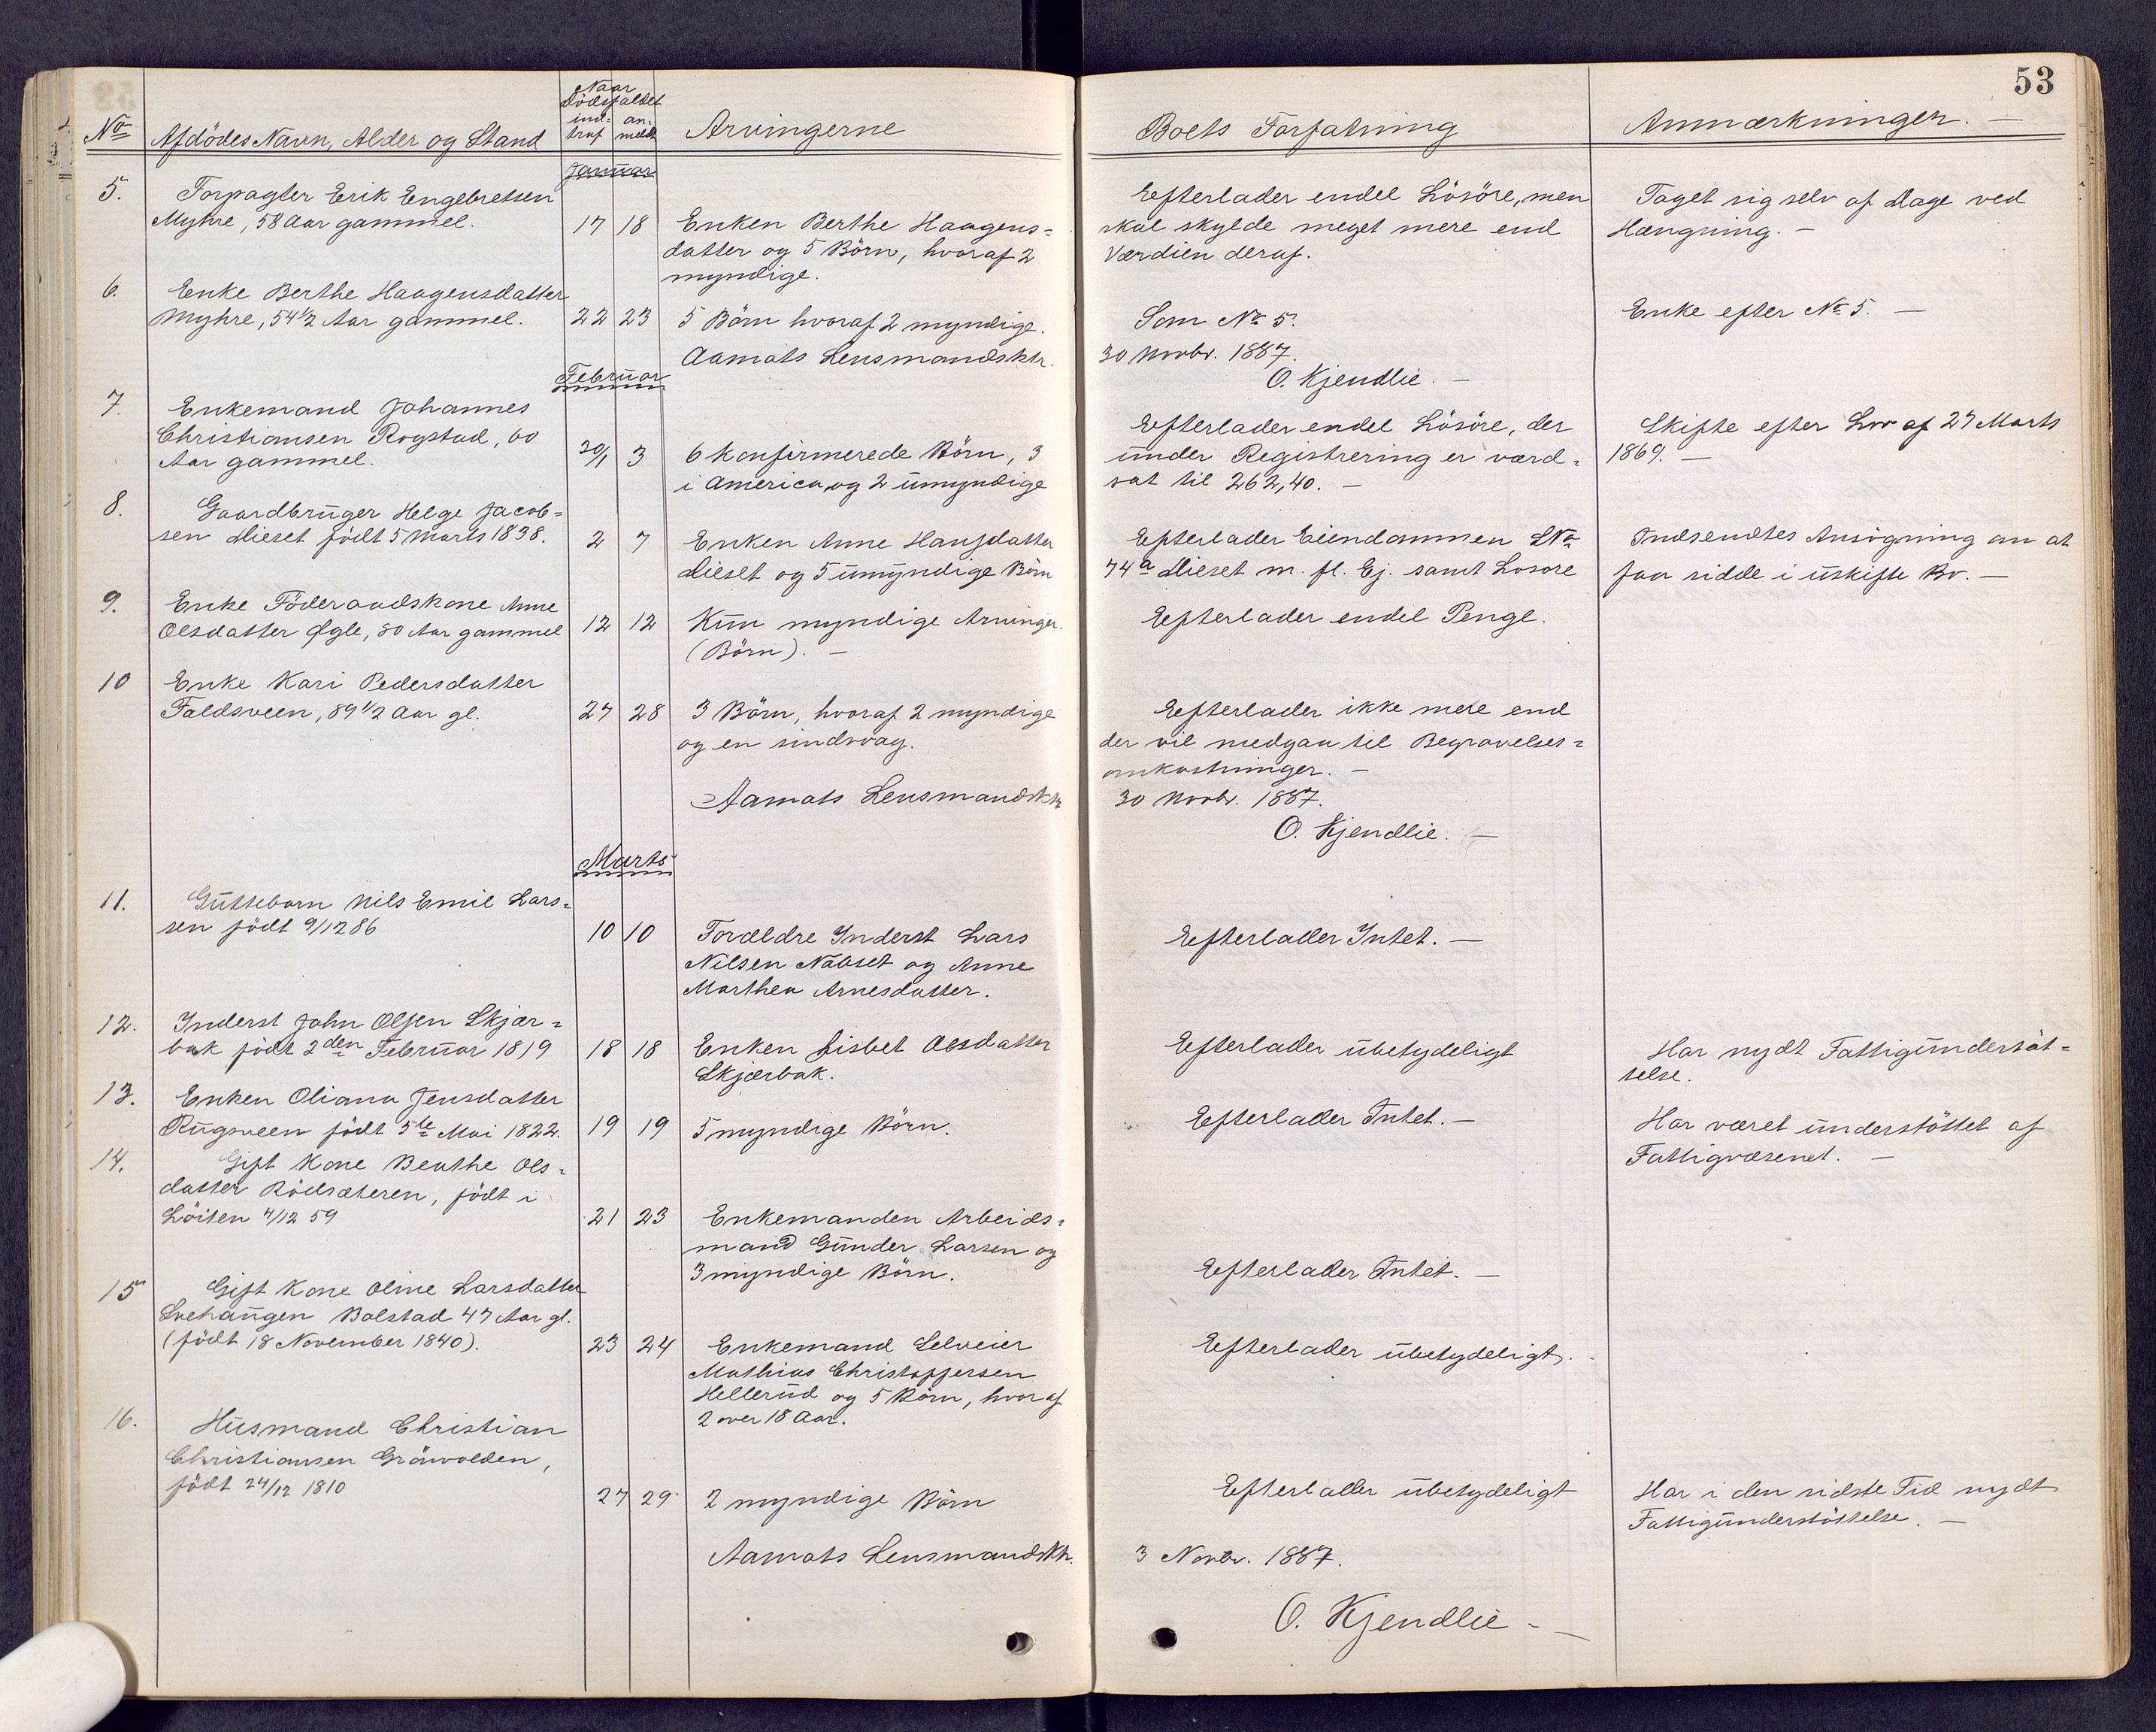 53
Naar
Dödsfaldet
ind- an-
No Afdödes Navn, Alder og Stand traf meldt Arvingerne Boets Forfatning Anmærkninger. —
Januar
5. Forpagter Erik Engebretsen Efterlader endel Lösöre, men Taget sig selv af Dage ved
Myhre, 58 Aar gammel. 17 18 Enken Berthe Haagens= skal skylde meget mere end Hængning. —
datter og 5 Börn, hvoraf 2 Værdien deraf.
myndige.
6. Enke Berthe Haagensdatter Enke efter No 5. —
Myhre, 54 1/2 Aar gammel. 22 23 5 Börn hvoraf 2 myndige. Som No 5.
Aamots Lensmandsktr. 30 Novbr. 1887.
Februar O. Kjendlie. —
7. Enkemand Johannes Efterlader endel Lösöre, der Skifte efter Lov af 27 Marts
Christiansen Rogstad, 60 under Registrering er værd= 1869. —
Aar gammel. 30/1 3 6 konfirmerede Börn, 3 sat til 262,40. —
i America, og 2 umyndige
8. Gaardbruger Helge Jacob= Efterlader Eiendommen LNo Indsendtes Ansögning om at
sen Dieset födt 5 Marts 1838. 2 7 Enken Anne Hansdatter 74a Dieset m. fl. Ej. samt Losore faa sidde i uskifte Bo. —
Dieset og 5 umyndige Börn
9. Enke Föderaadskone Anne Efterlader endel Penge.
Olsdatter Øgle, 80 Aar gammel 12 12 Kun myndige Arvinger.
(Börn). —
10 Enke Kari Pedersdatter
Faldsveen, 89 1/2 Aar gl. 27 28 3 Börn, hvoraf 2 myndige Efterlader ikke mere end
og en sindsvag. der vil medgaa til Begravelses=
omkostninger. —
Aamots Lensmandsktr 30 Novbr. 1887.
O. Kjendlie. —
Marts
11. Guttebarn Nils Emil Lars=
sen födt 9/12 86 10 10 Forældre Inderst Lars Efterlader Intet. —
Nilsen Nabset og Anne
Marthea Arnesdatter.
12. Inderst John Olsen Skjær= Efterlader ubetydeligt Har nydt Fattigunderstöt=
bak födt 2den Februar 1819 18 18 Enken Lisbet Olsdatter telse.
Skjærbak.
13. Enken Oliana Jensdatter Efterlader Intet. — Har været understöttet af
Rugsveen födt 5te Mai 1822. 19 19 5 myndige Börn. Fattigvæsenet. —
14. Gift Kone Beathe Ols=
datter Rödsæteren, födt i
Löiten 4/12 59 21 23 Enkemanden Arbeids=
mand Gunder Larsen og Efterlader Intet. —
3 myndige Börn.
15 Gift Kone Oline Larsdatter
Svehaugen Bolstad 47 Aar gl.
(födt 18 November 1840). 23 24 Enkemand Selveier Efterlader ubetydeligt.
Mathias Christoffersen
Hellerud og 5 Börn, hvoraf
2 over 18 Aar.
16. Husmand Christian
Christiansen Grönvolden,
födt 24/12 1810 27 29 2 myndige Börn Efterlader ubetydeligt Har i den sidste Tid nydt
Fattigunderstöttelse. —
Aamots Lensmandsktr. 3 Novbr. 1887.
O. Kjendlie —